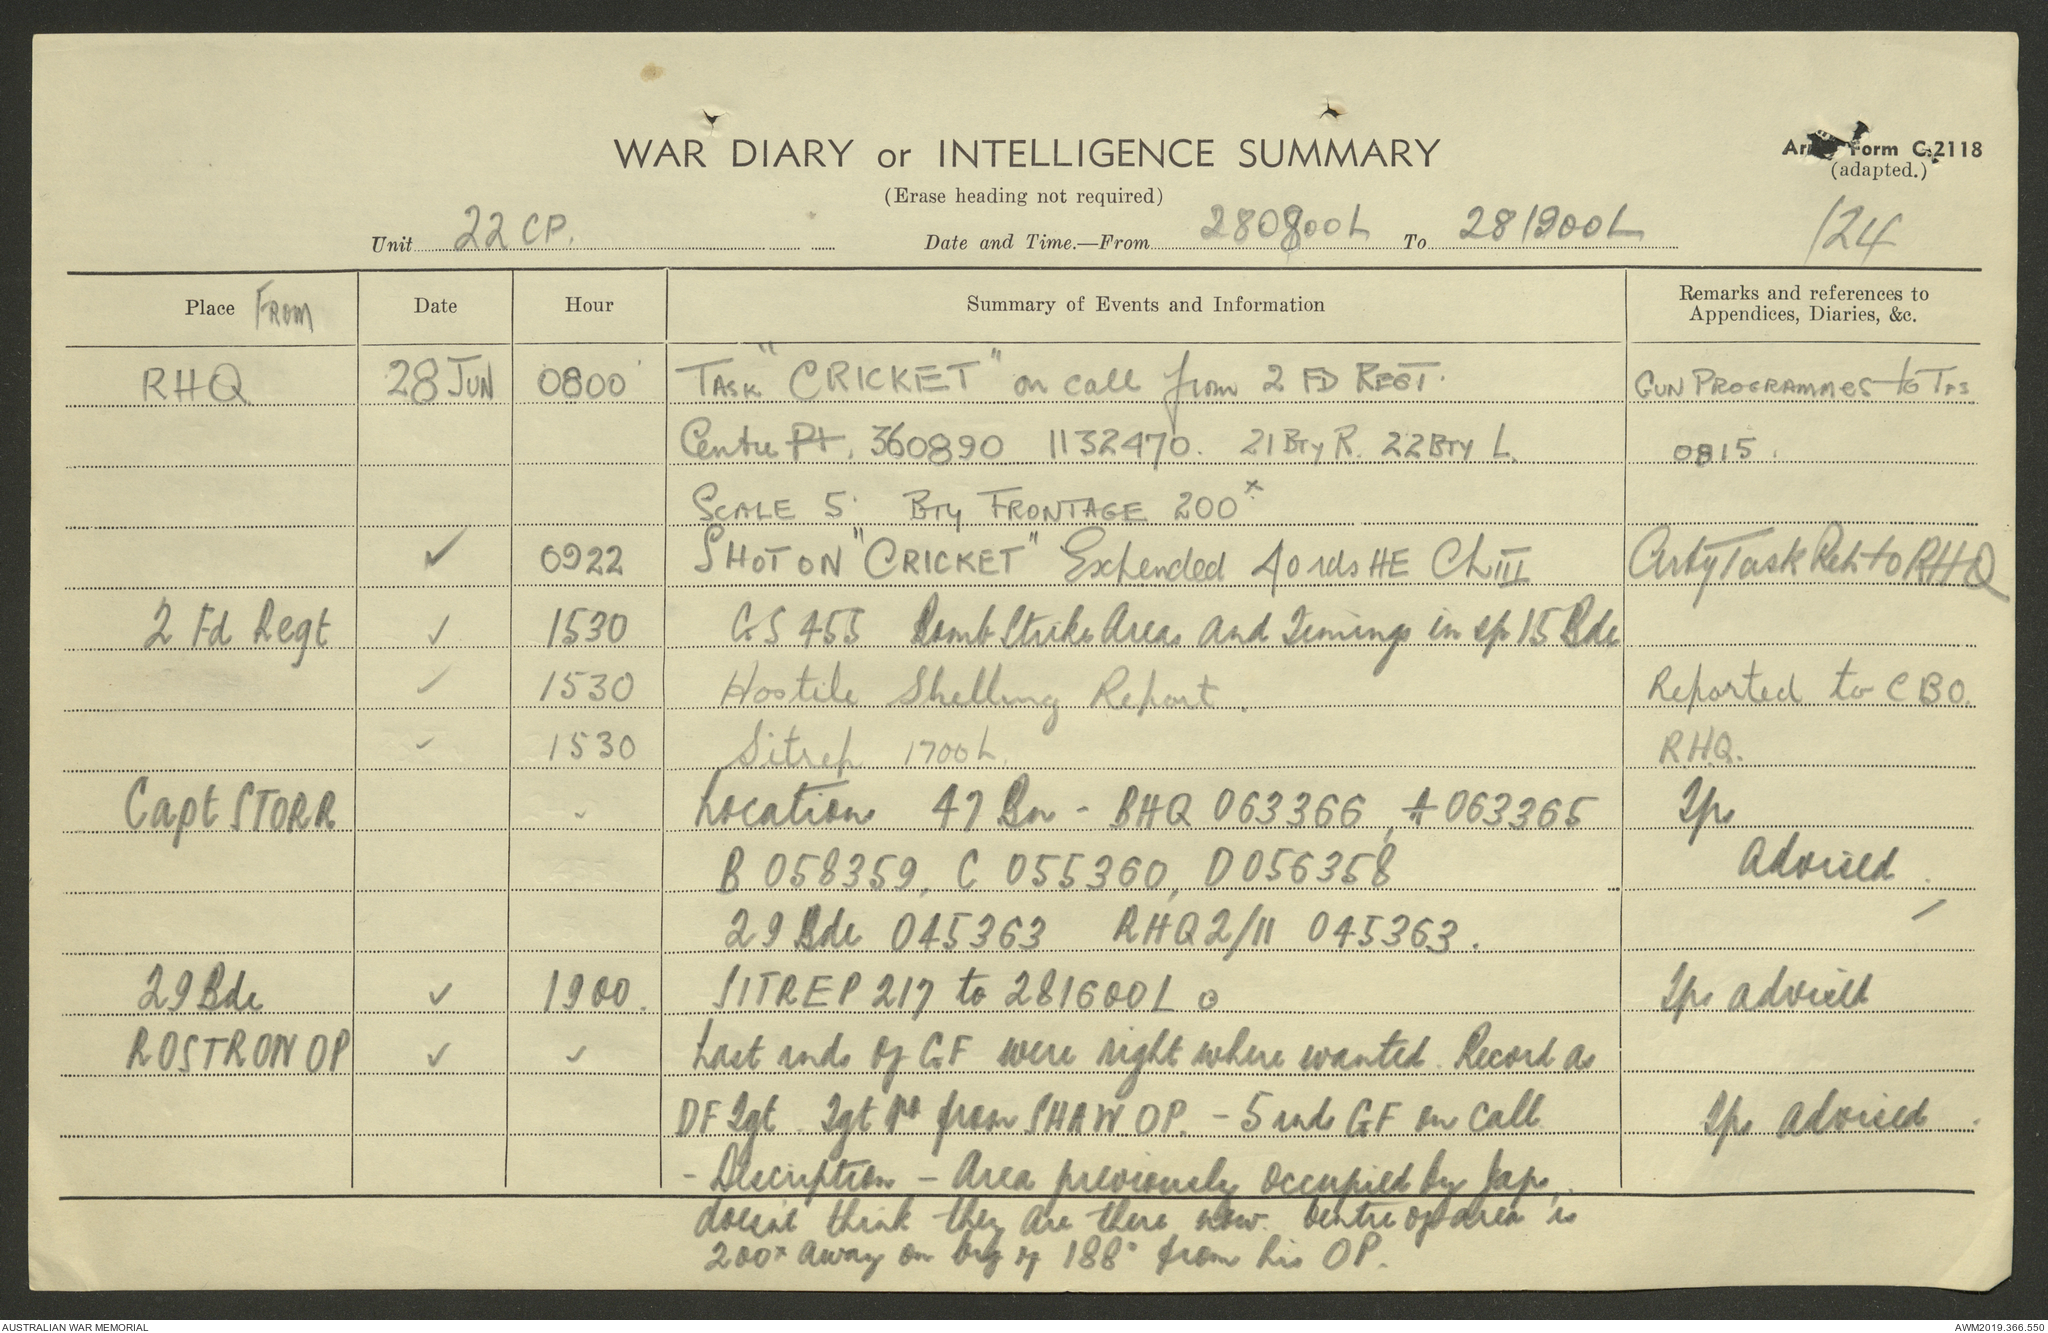 WAR DIARY or INTELLIGENCE SUMMARY
Army Form C.2118
(adapted.)
(Erase heading not required)
Unit 22 CP. Date and Time.—From 280800L To 281900L 124
Place From Date Hour Summary of Events and Information Remarks and references to
Appendices, Diaries, &c.
RHQ 28 JUN 0800 TASK "CRICKET" on call from 2 FD REGT. GUN PROGRAMMES to TPS
Centre Pt. 360890 1132470. 21 BTY R. 22 BTY L. 0815.
SCALE 5 BTY FRONTAGE 200x
✓ 0922 SHOT ON "CRICKET" Expended 40 rds HE Ch III Arty Task Rep to RHQ
2 Fd Regt ✓ 1530 GS 455 Bomb Strike Areas and Timings in sp 15 Bde
✓ 1530 Hostile Shelling Report. Reported to CBO.
✓ 1530 Sitrep 1700L. RHQ.
Capt STORR Locations 47 Bn - BHQ 063366, A 063365 Tps
B 058359, C 055360, D 056358 advised.
29 Bde 045363 RHQ 2/11 045363.
29 Bde ✓ 1900. SITREP 217 to 281600L Tps advised
ROSTRON OP ✓ ✓ Last rnds of GF were right where wanted. Record as
DF Tgt. Tgt from SHAW OP. - 5 rnds GF on call Tps advised.
- Description - Area previously occupied by Japs,
doesn't think they are there now. Centre of area is
200x away on brg of 188° from his OP.
AUSTRALIAN WAR MEMORIAL AWM2019.366.550